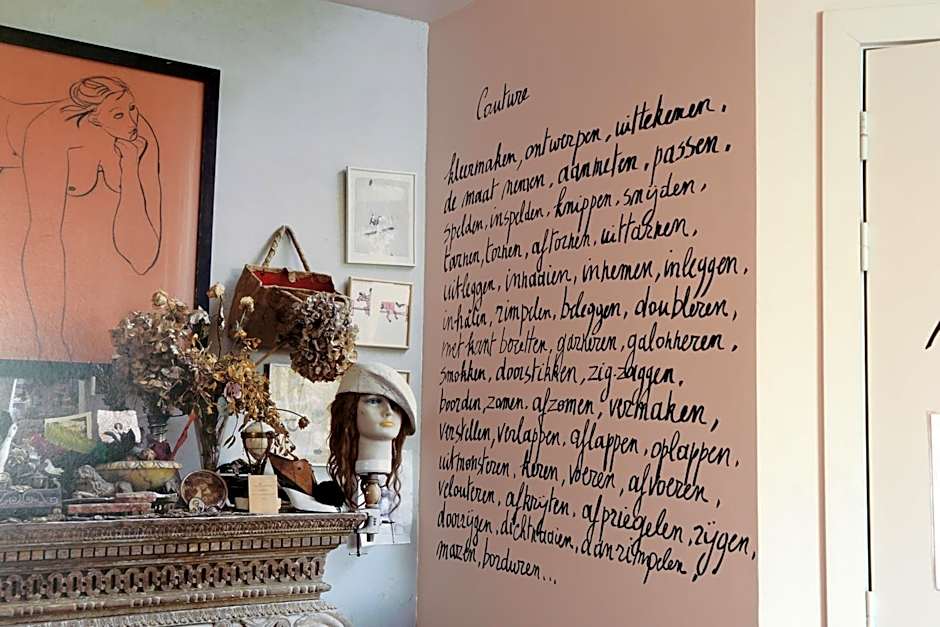 Couture
kleermaken, ontwerpen, uittekenen,
de maat nemen, aanmeten, passen,
spelden, inspelden, knippen, smijden,
tarnen, tornen, aftornen, uittarnen,
uitleggen, inhaaien, innemen, inleggen,
rimpelen, beleggen, doubleren,
met kant bezetten, garneren, galonneren,
smokken, doorstikken, zig-zaggen,
boorden, zomen, afzomen, vermaken,
verstellen, verlappen, aflappen, oplappen,
uitmonsteren, keren, voeren, afvoeren,
velouteren, afkrijten, afpriegelen, rijgen,
doorrijgen, dichtnaaien, aanrimpelen,
mazen, borduren...